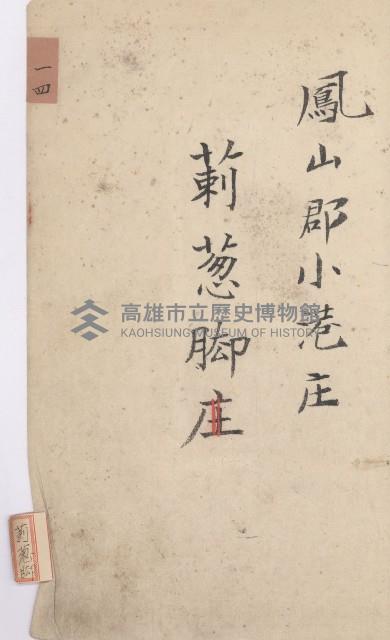 鳳山郡小港庄
莿葱脚庄
一四
莿葱脚
高雄市立歷史博物館
KAOHSIUNG MUSEUM OF HISTORY